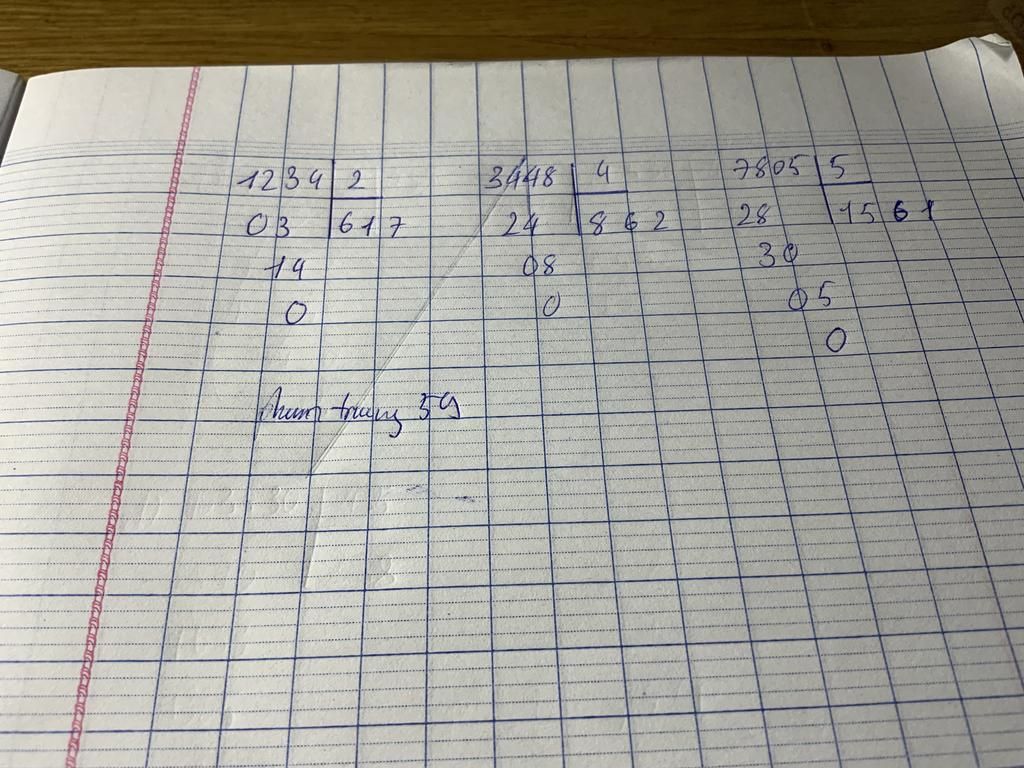 1234 2 3448 4 7805 5
03 617 24 862 28 1561
14 08 30
0 0 05
0
trung 59